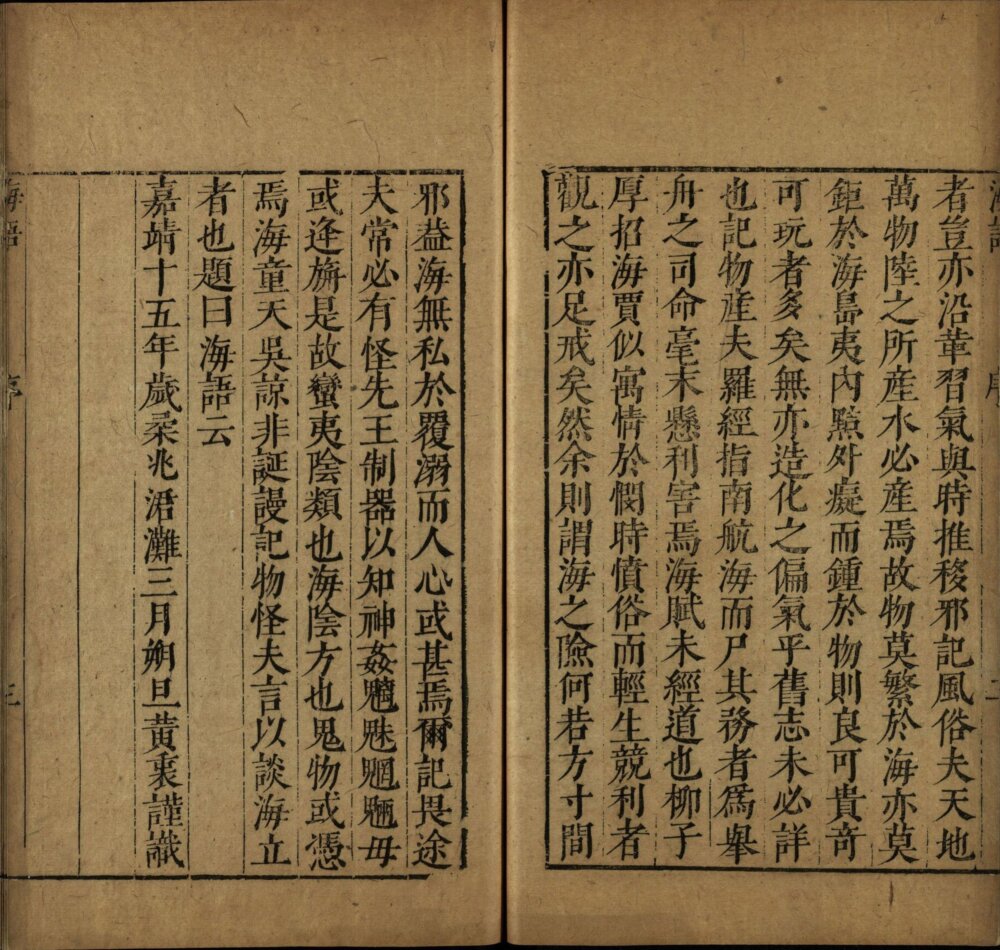 海語
序
二
者豈亦沿華習氣與時推移邪記風俗夫天地
萬物陸之所產水必產焉故物莫繁於海亦莫
鉅於海島夷內黠外癡而鍾於物則良可貴奇
可玩者多矣無亦造化之偏氣乎舊志未必詳
也記物產夫羅經指南航海而尸其務者為舉
舟之司命毫末懸利害焉海賦未經道也柳子
厚招海賈似寓情於憫時憤俗而輕生競利者
觀之亦足戒矣然余則謂海之險何若方寸間
邪葢海無私於覆溺而人心或甚焉爾記畏途
夫常必有怪先王制器以知神姦魑魅魍魎毋
或逢旃是故蠻夷陰類也海陰方也鬼物或憑
焉海童天吳諒非誕謾記物怪夫言以談海立
者也題曰海語云
嘉靖十五年歲柔兆涒灘三月朔旦黃衷謹識
海語
序
三